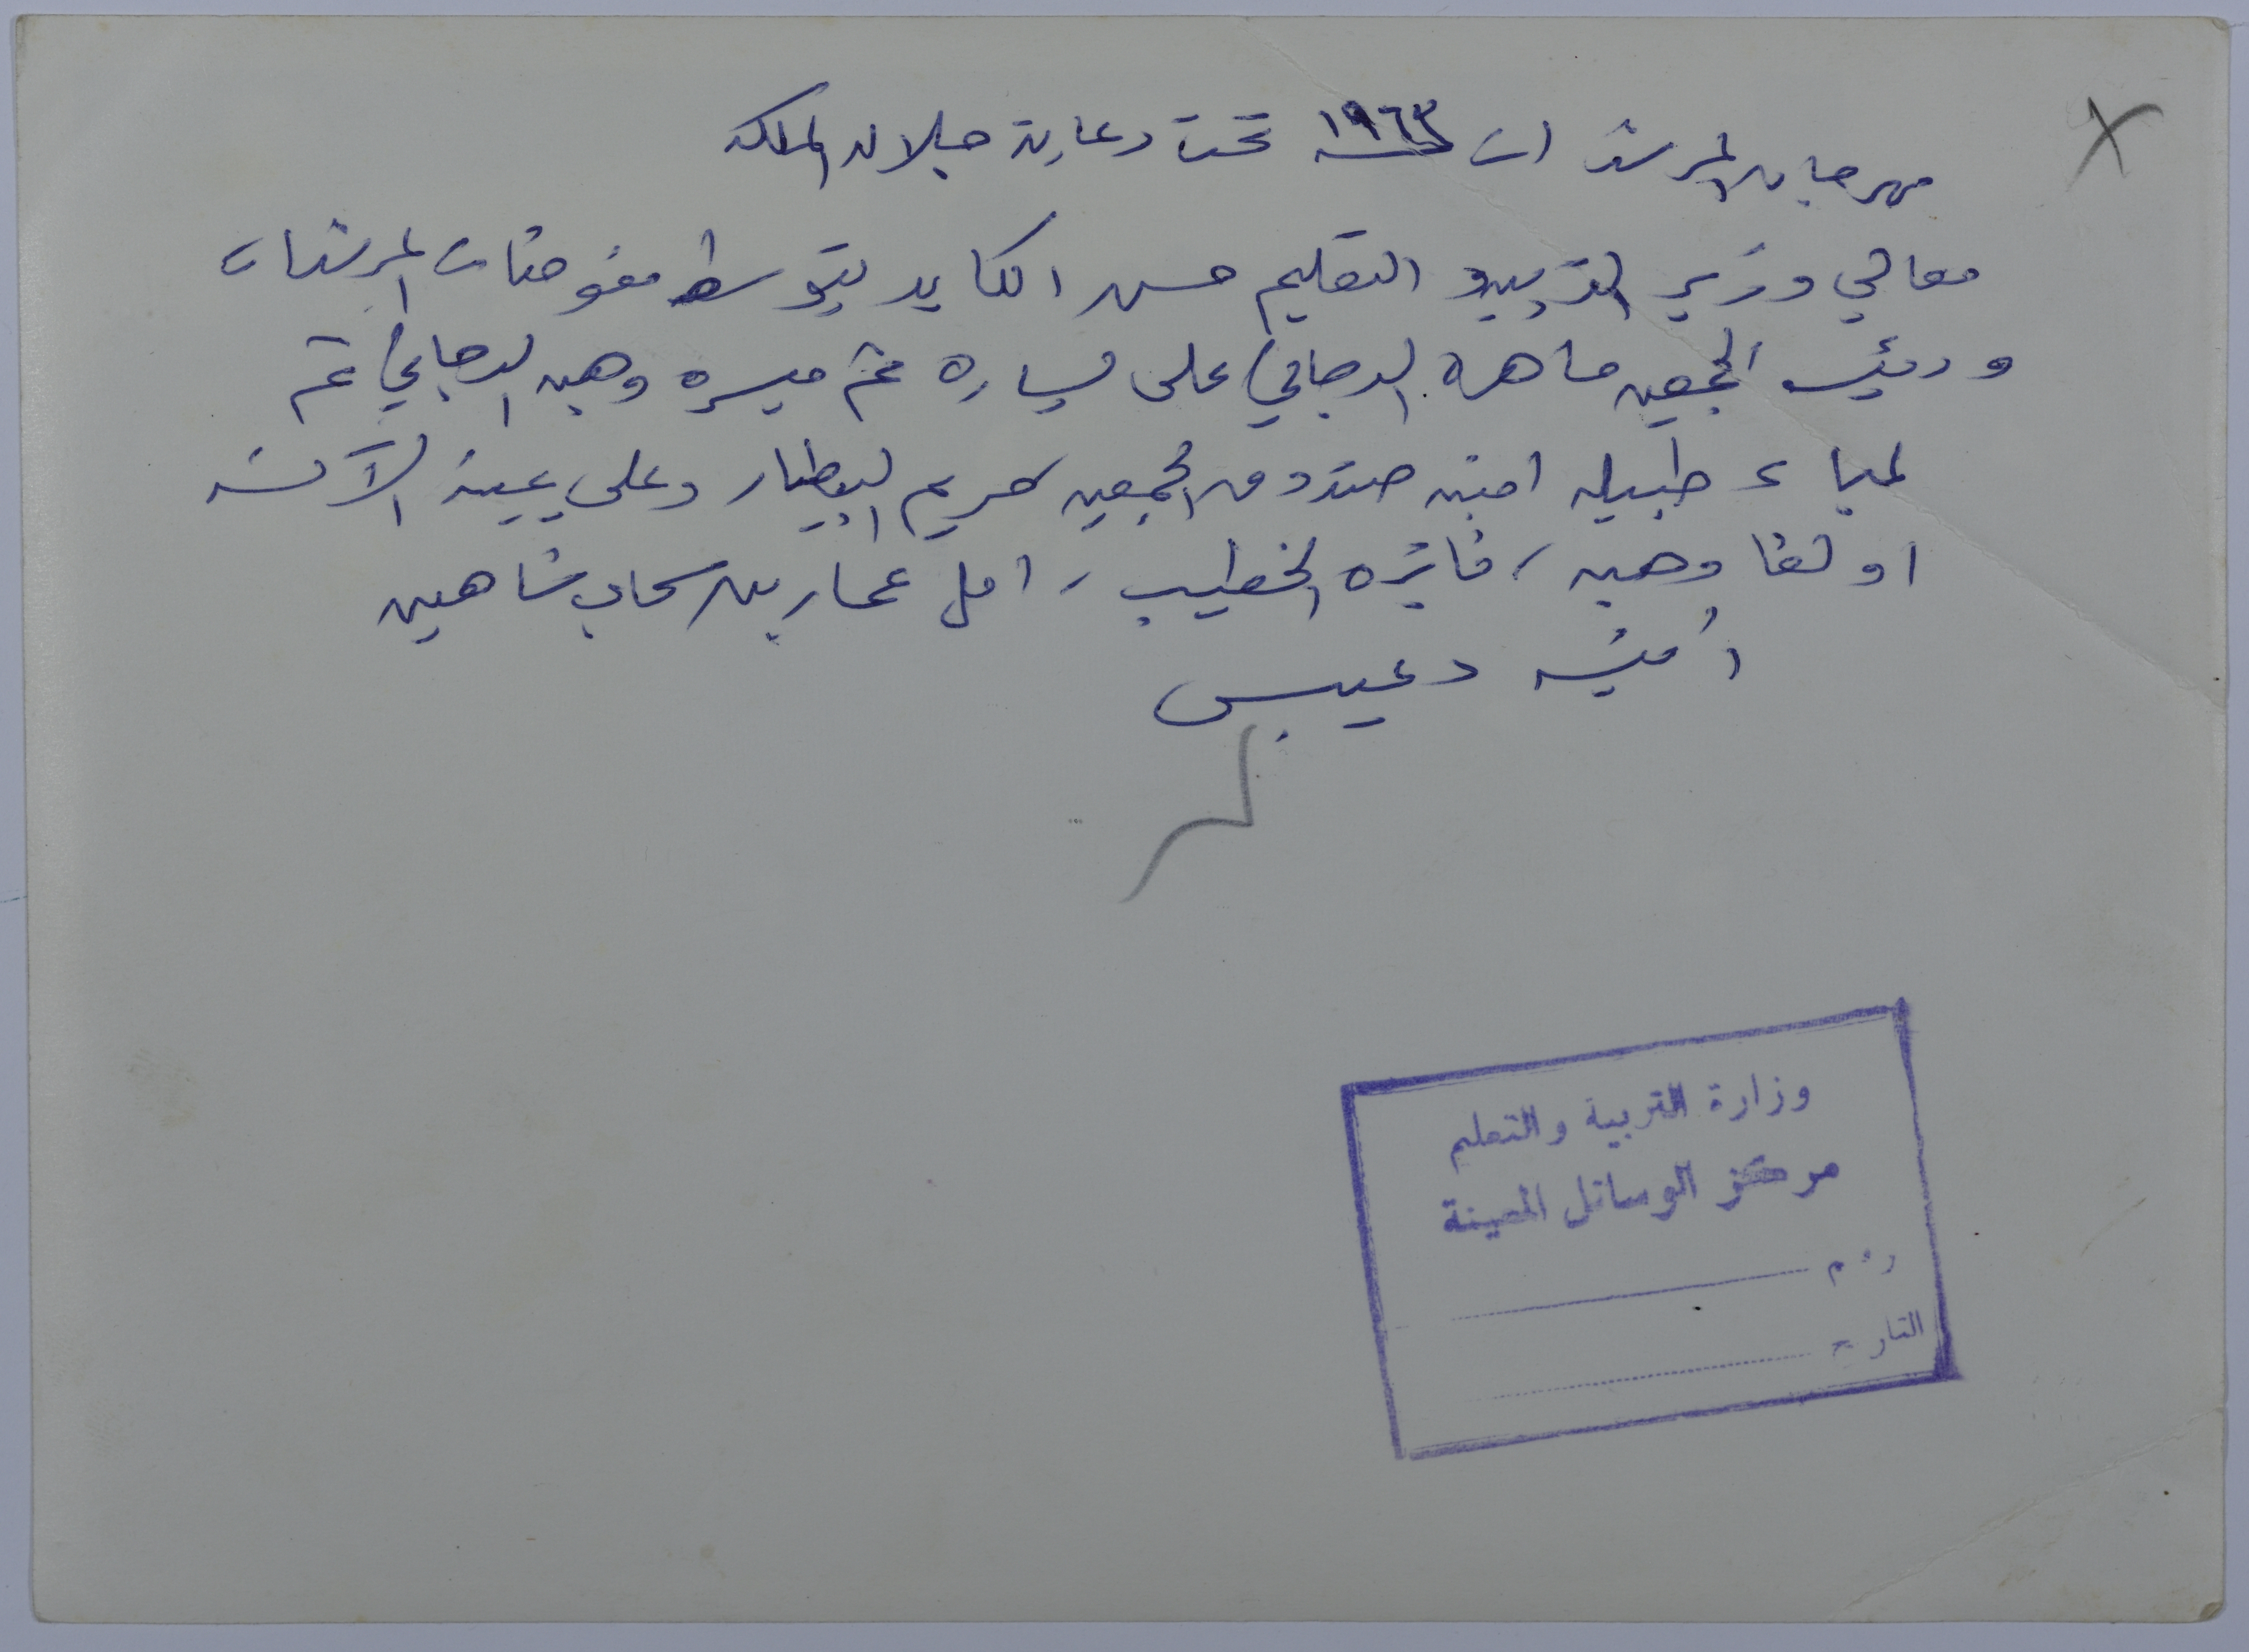 مهرجان المرشدات ١٩٦٣ تحت رعاية جلاله الملكه
معالي وزير التربيه و التعليم حسن الكايد يتوسط مفوضات المرشدات
و رئيسه الجمعيه ماهره الدجاني على يساره ثم ميسره وهبه الدجاني ثم
لمياء طبيله امينه صندوق الجمعيه كريم البيطار وعلى يمينه الآنسه
اولغا وهبه، فائزه الخطيب، امل عمارين سحاب شاهين
أمينه دعيبس
وزارة التربية والتعليم
مركز الوسائل المعينة
رقم
التاريخ